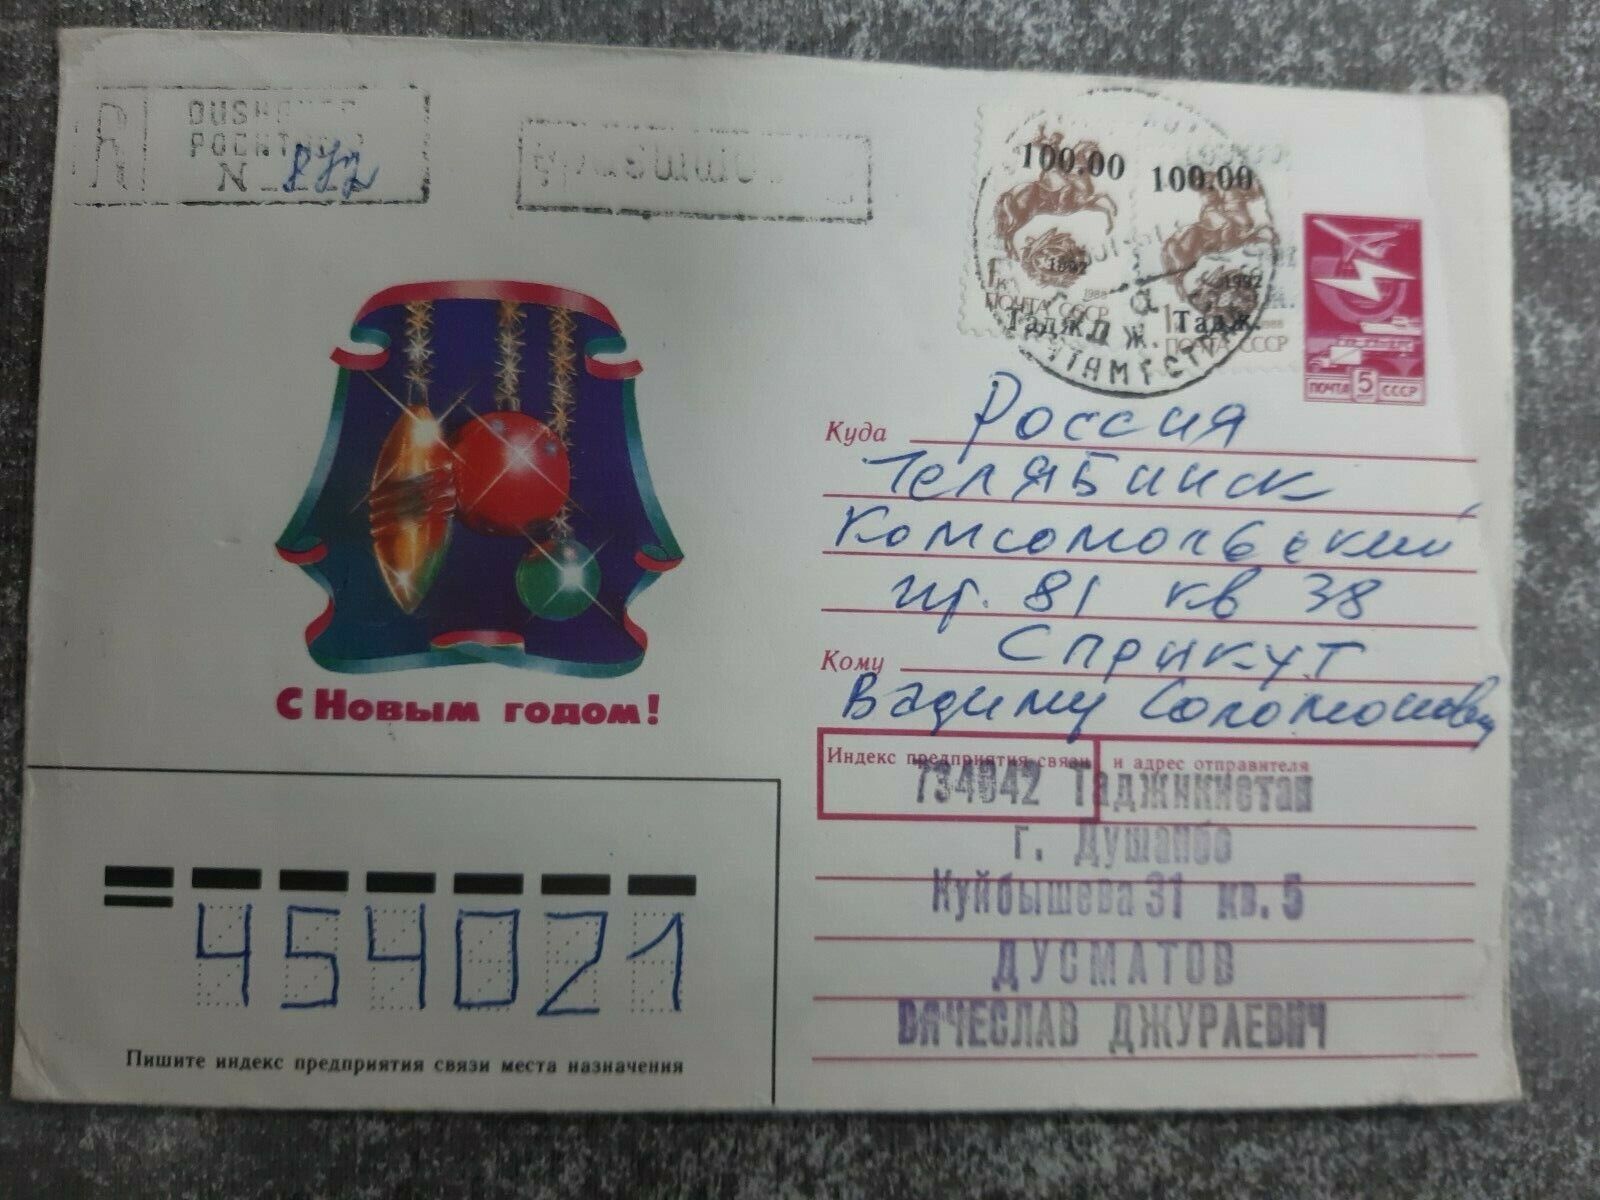 R
DUSHANBE
POCHTAMT
N 872
100.00
100.00
1992
1992
1к
1988
1к
1988
ПОЧТА СССР
ПОЧТА СССР
Тадж.
Тадж.
ПОЧТАМТ
ПОЧТА 5 СССР
Куда Россия
Челябинск
Комсомольский
пр. 81 кв 38
Кому Сприкут
Вадиму Соломоновичу
С Новым годом!
Индекс предприятия связи и адрес отправителя
734042 Таджикистан
г. Душанбе
Куйбышева 31 кв. 5
ДУСМАТОВ
ВЯЧЕСЛАВ ДЖУРАЕВИЧ
454021
Пишите индекс предприятия связи места назначения